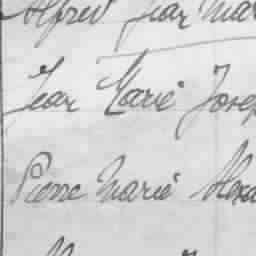 Alfred Jean Mar
Jean Marie Josep
Pierre Marie Alexa